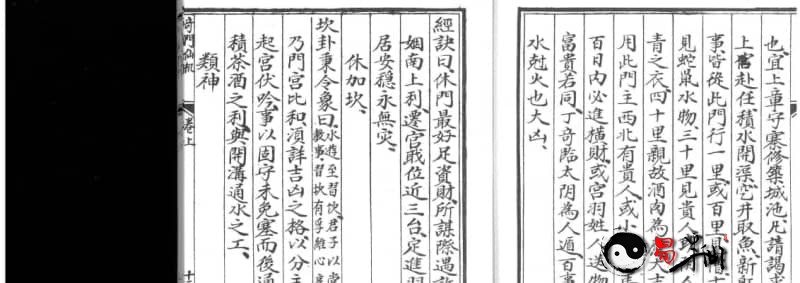 也、宜上章守寨修築城池、凡請謁求
上官赴任、積水開渠、穿井取魚、新
事皆從此門行一里或百里、見
見蛇鼠水物、三十里見貴人
青之衣、四十里親故酒肉為大吉
用此門主西北有貴人或小
百日內必進横財、或宮羽姓人送物
富貴若同、丁奇臨太阴為人遁、百事
水尅火也大凶、
經訣曰、休門最好足資財、所謀際遇
姻南上利遷宮、戰位近三台、定進羽
居安穩永無灾、
休加坎、
坎卦秉令象曰、水洊至習坎、君子以常
教事習坎有孚維心亨
乃門宮比和、須詳吉凶之格、以分主
起宮伏吟、事以固守未免塞而後通
積茶酒之利、與開溝通水之工、
類神
奇門仙机
卷上
十
易